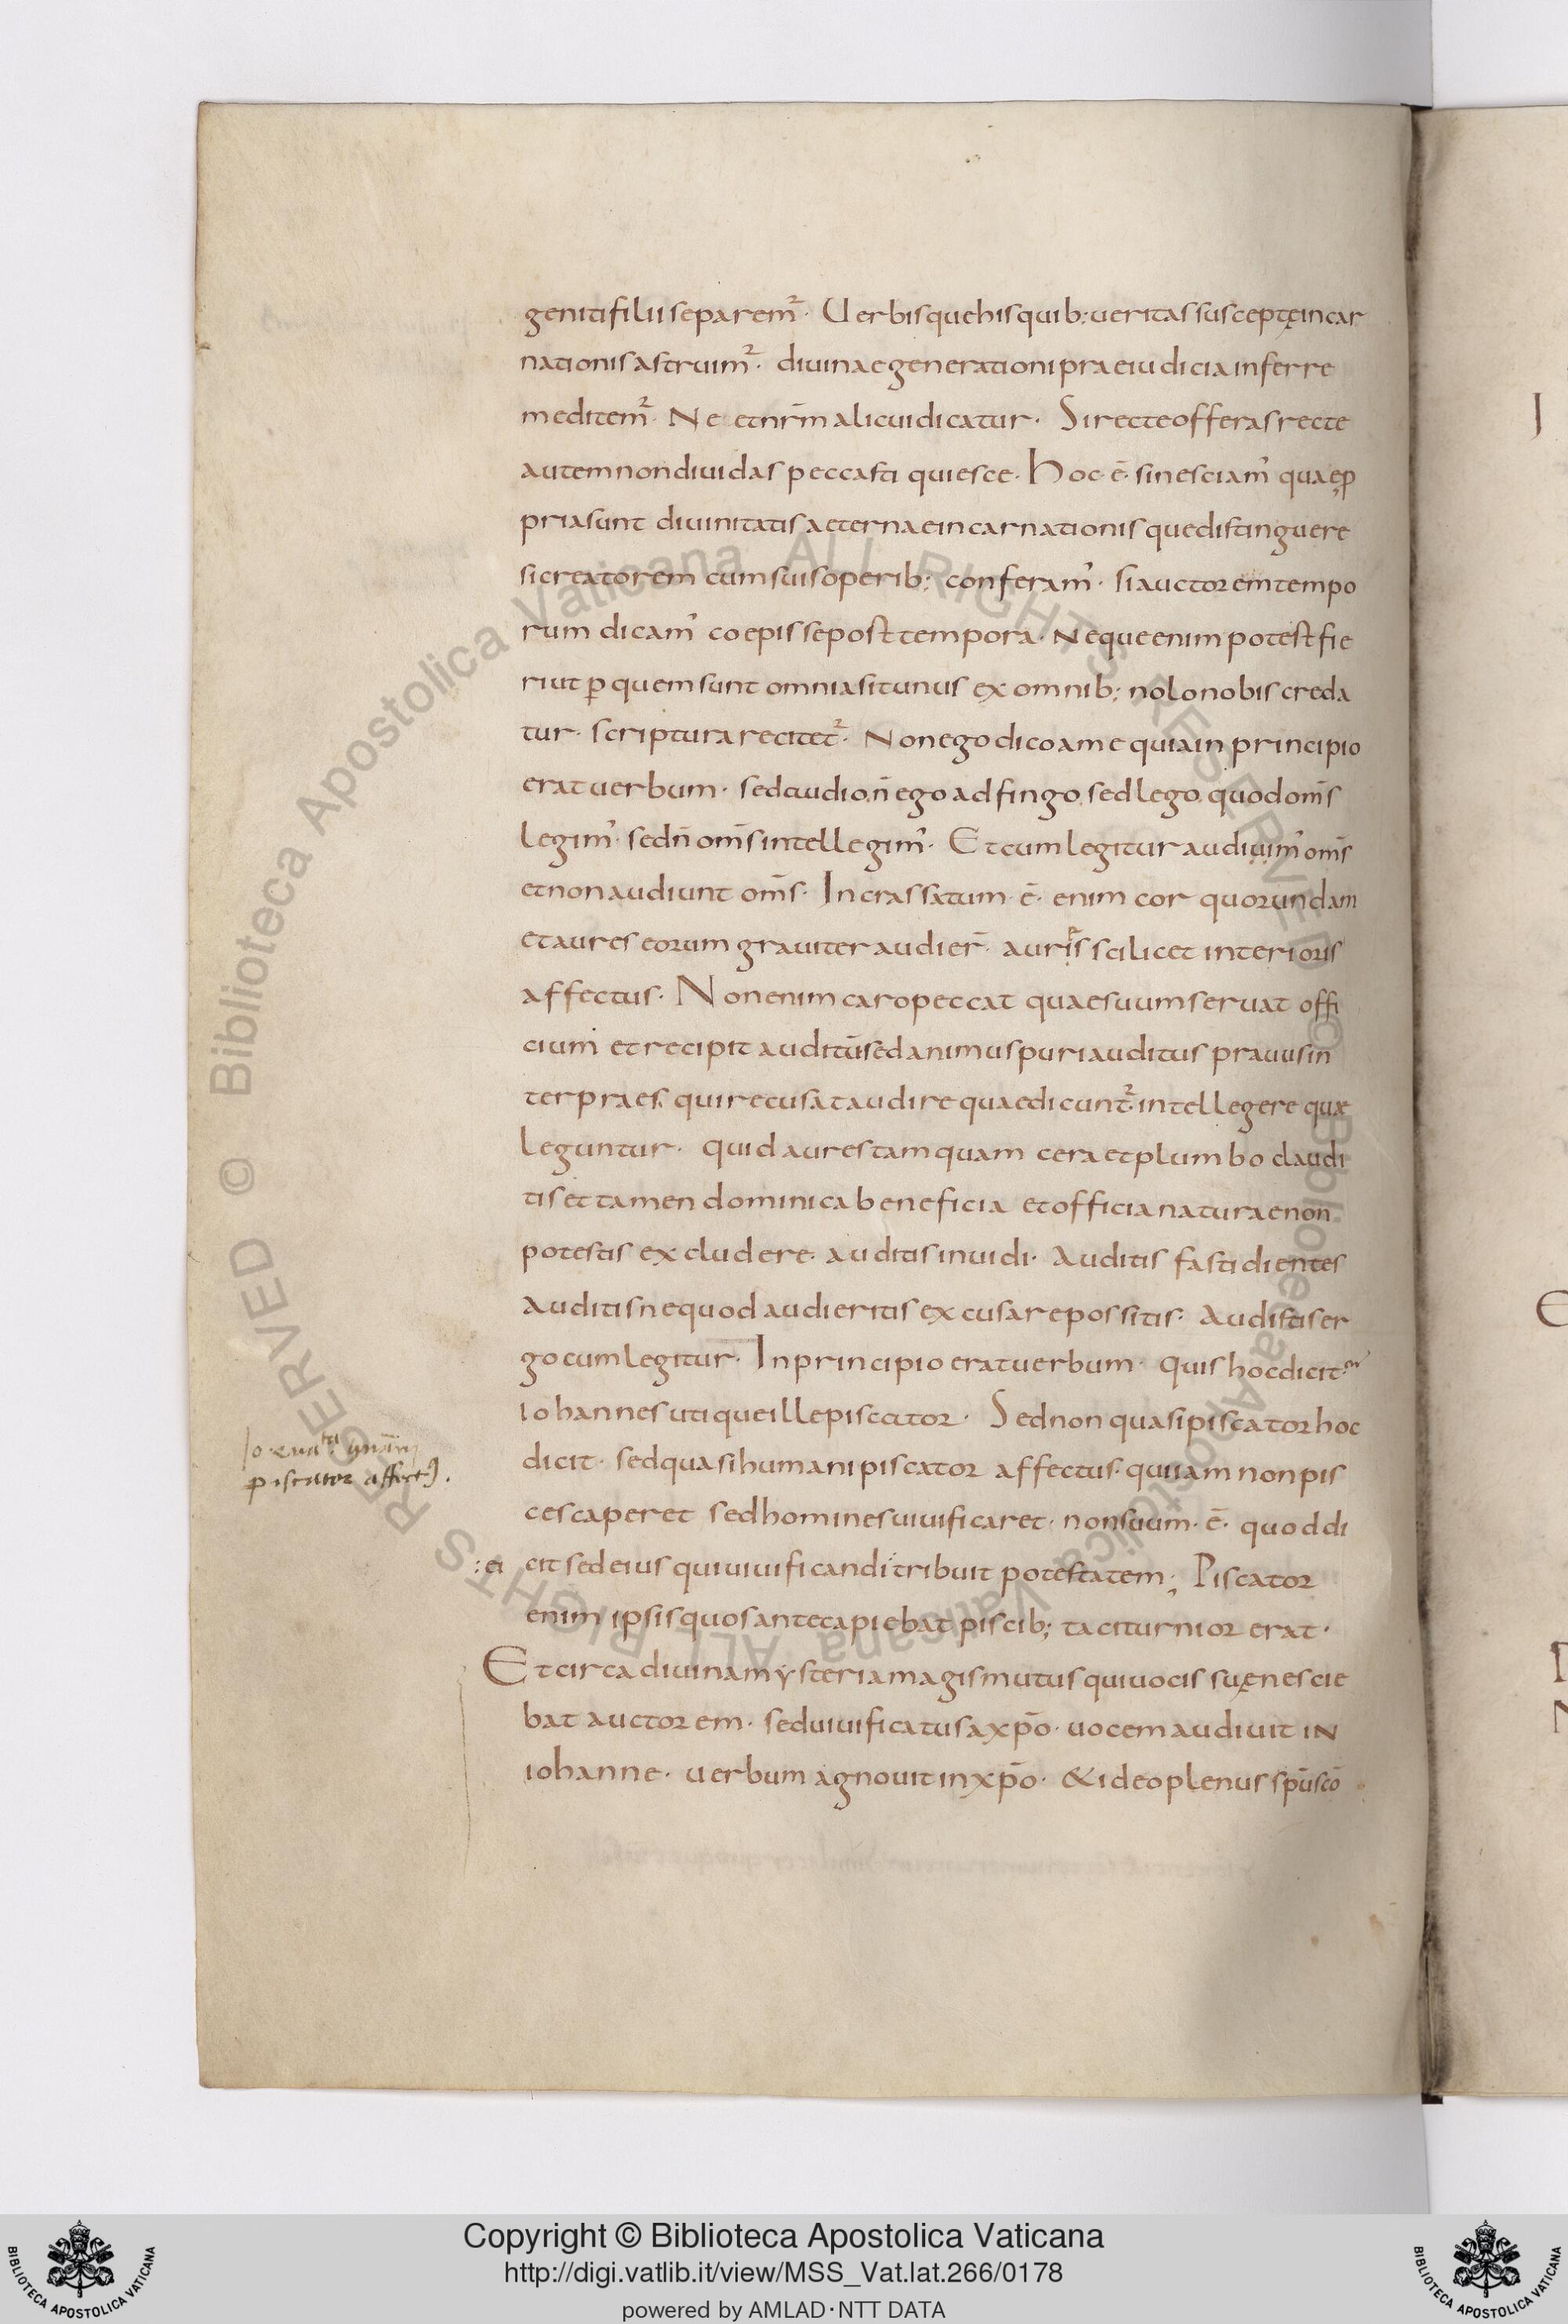 genitifilii separem᷑· Uerbisque his quib; ueritas susceptę incar
nationis astruim᷑· diuinae generationi praeiudicia inferre
meditem᷑· Ne et nr̄m alicui dicatur· Si recte offeras recte
autem non diuidas peccasti quiesce· Hoc· ē· si nesciam' quae ꝓ
pria sunt diuinitatis aeternae incarnationisque distinguere
si creatorem cum suis operib; conferam'· si auctorem tempo
rum dicam' coepisse post tempora· Neque enim potest fie
ri ut ꝑ quem sunt omnia sit unus ex omnib; nolo nobis creda
tur· scriptura recitet᷑· Non ego dico a me quia in principio
erat uerbum· sed audio, n̄ ego adfingo, sed lego, quod om̄s
legim'· sed n̄ om̄s intellegim'· Et cum legitur audiuim' om̄s
et non audiunt om̄s· Incrassatum· ē· enim cor quorundam
et aures eorum grauiter audier̄· auris scilicet interioris
affectus· Non enim caro peccat quae suum seruat offi
cium et recipit auditū sed animus puri auditus prauus in
terpraes, qui recusat audire quae dicunt᷑· intellegere quæ
leguntur· quid aures tamquam cera et plumbo claudi
tis et tamen dominica beneficia et officia naturae non
potestis excludere· auditis inuidi· Auditis fastidientes
Auditis ne quod audieritis excusare possitis· Audistis er
go cum legitur· In principio erat uerbum· quis hoc dicit·
iohannes utique ille piscator· Sed non quasi piscator hoc
dicit· sed quasi humani piscator affectus· qui iam non pis
Io· eua
piscator affect'.
ces caperet sed homines uiuificaret· non suum· ē· quod di
:ei cit sed eius qui uiuificandi tribuit potestatem; Piscator
enim ipsis quos ante capiebat piscib; taciturnior erat·
Et circa diuina mysteria magis mutus qui uocis suę nescie
bat auctorem· sed uiuificatus a xp̄o· uocem audiuit in
iohanne· uerbum agnouit in xp̄o· & ideo plenus sp̄u sc̄o
Copyright © Biblioteca Apostolica Vaticana
http://digi.vatlib.it/view/MSS_Vat.lat.266/0178
powered by AMLAD·NTT DATA
BIBLIOTECA APOSTOLICA VATICANA
BIBLIOTECA APOSTOLICA VATICANA
© Biblioteca Apostolica Vaticana ALL RIGHTS RESERVED © Biblioteca Apostolica Vaticana ALL RIGHTS RESERVED